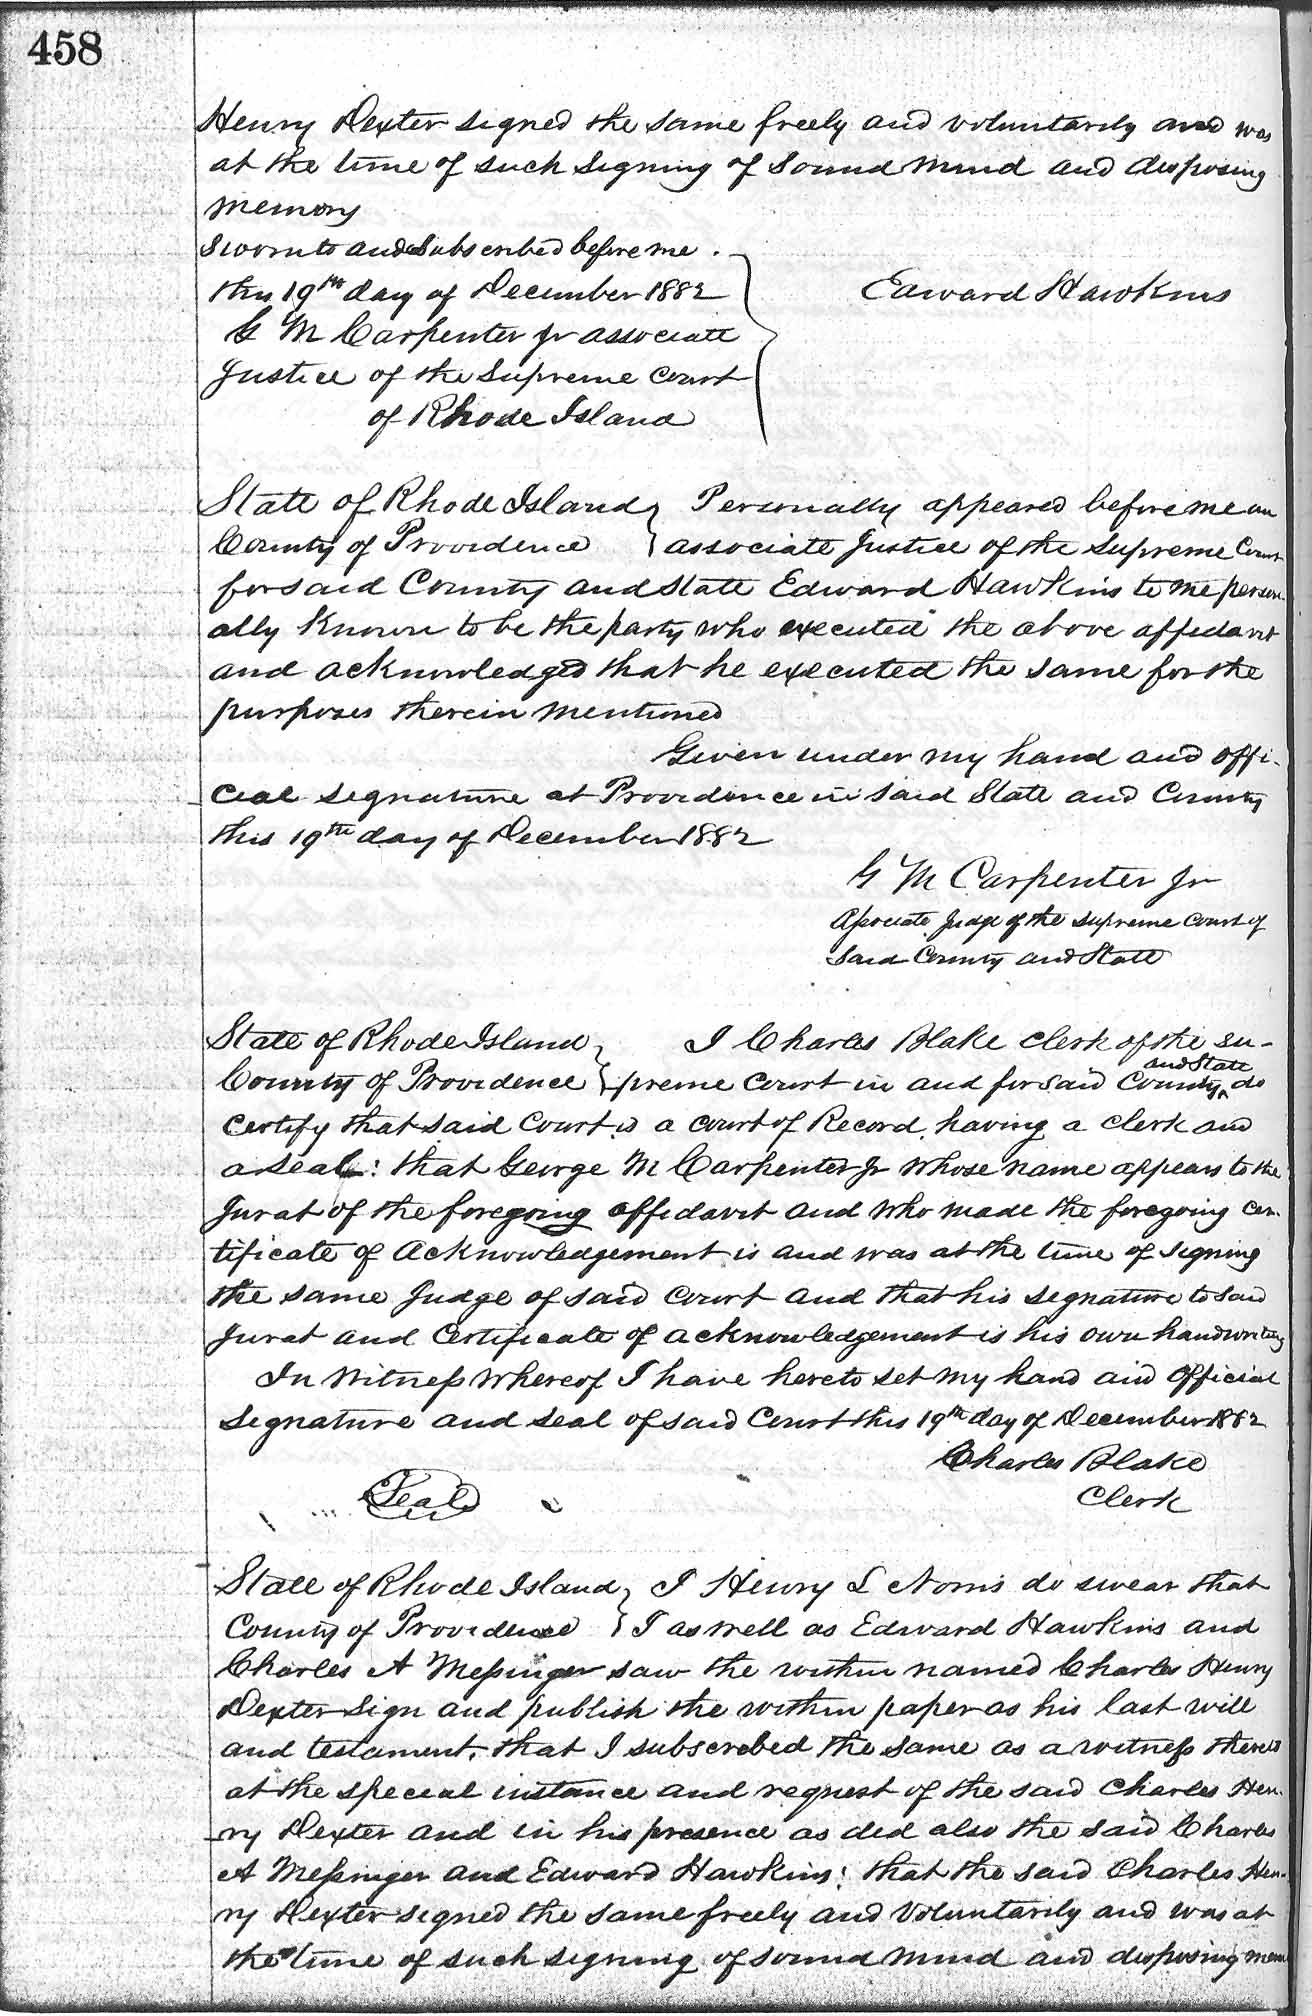 458
Henry Dexter signed the same freely and voluntarily and was
at the time of such signing of sound mind and disposing
memory
Sworn to and Subscribed before me .
this 19th day of December 1882
Edward Hawkins
G M Carpenter Jr associate
Justice of the Supreme Court
of Rhode Island
State of Rhode Island } Personally appeared before me an
County of Providence } associate Justice of the Supreme Court
for said County and State Edward Hawkins to me person-
ally Known to be the party who executed the above affidavit
and acknowledged that he executed the same for the
purposes therein mentioned
Given under my hand and offi-
cial signature at Providence in said State and County
this 19th day of December 1882
G M Carpenter Jr
Associate Judge of the Supreme Court of
said County and State
State of Rhode Island } I Charles Blake Clerk of the Su-
County of Providence } preme Court in and for said County and State do
certify that said Court is a court of Record, having a Clerk and
a seal: that George M Carpenter Jr whose name appears to the
Jurat of the foregoing affidavit and who made the foregoing cer-
tificate of Acknowledgement is and was at the time of signing
the same Judge of said Court and that his signature to said
Jurat and Certificate of acknowledgement is his own handwriting
In Witness Whereof I have hereto set my hand and Official
signature and seal of said Court this 19th day of December 1882
Charles Blake
Seal
Clerk
State of Rhode Island } I Henry L Norris do swear that
County of Providence } I as well as Edward Hawkins and
Charles A Messinger saw the within named Charles Henry
Dexter sign and publish the within paper as his last will
and testament, that I subscribed the same as a witness thereto
at the special instance and request of the said Charles Hen-
ry Dexter and in his presence as did also the said Charles
A Messinger and Edward Hawkins: that the said Charles Hen-
ry Dexter signed the same freely and Voluntarily and was at
the time of such signing of sound mind and disposing mem